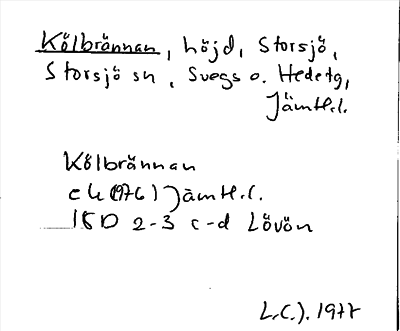 Kölbrännan, höjd, Storsjö,
Storsjö sn, Svegs o. Hedetg,
Jämtl.l.
Kölbrännan
ek (1976) Jämtl.l.
18D 2-3 c-d Lövön
L.C.J. 1977